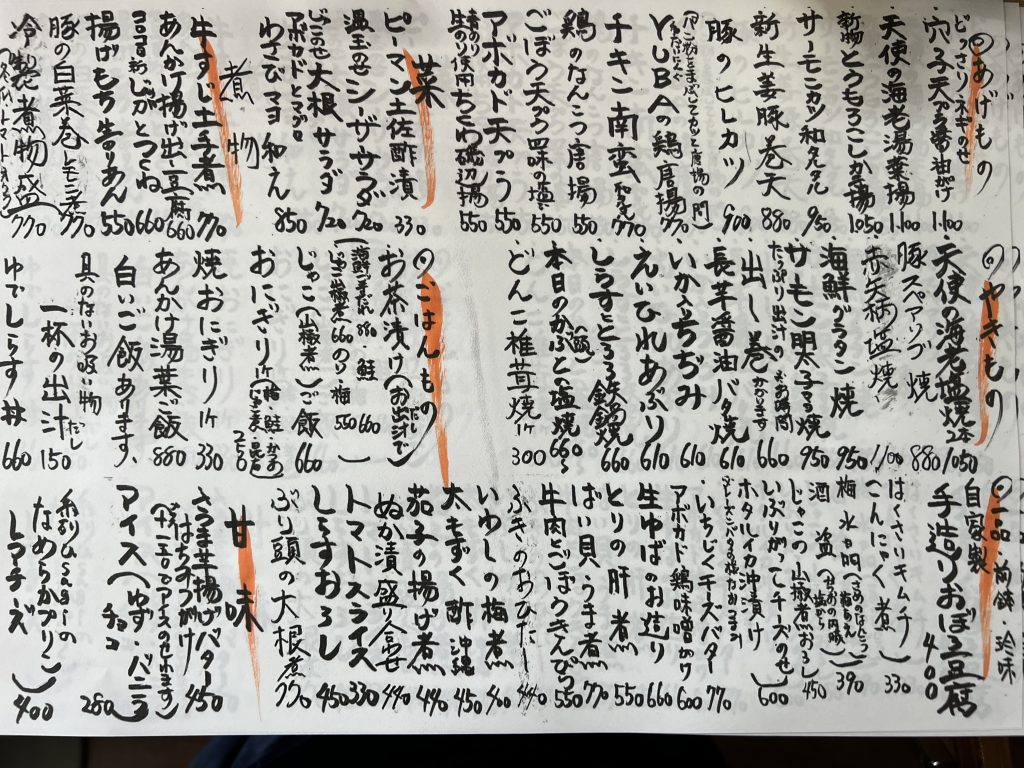 あげもの
どっさりネギのせ
穴子天ぷら醤油がけ 1.100
天使の海老湯葉揚 1.100
新物とうもろこしかき揚 1050
サーモンカツ和タルタル 950
新生姜豚巻天 880
豚のヒレカツ 900
YUBAの鶏唐揚 770
チキン南蛮 770
鶏のなんこつ唐揚 550
ごぼう天ぷら四味の塩 550
アボカド天ぷら 550
青のり 生のり使用 ちくわ磯辺揚 550
菜
ピーマン土佐酢漬 330
温玉のせシーザーサラダ 720
じゃこのせ大根サラダ 720
アボカドとマグロ
わさびマヨ和え 850
煮物
牛すじ土手煮 770
あんかけ揚げ出し豆腐 660
じがとつくね 660
揚げもち 生のりあん 550
豚の白菜巻レモン煮 770
冷製煮物盛 770
やきもの
天使の海老塩焼 2本 1050
豚スペアリブ焼 880
赤矢柄塩焼 1100
海鮮グラタン焼 950
サーモン明太子マヨ焼 950
たっぷり出汁の
出し巻 660
お時間かかります
長芋醤油バタ焼 610
いか立ちぢみ 610
えいひれあぶり 610
しらすととろろ鉄鍋焼 660
本日のかぶと塩焼 660〜
どんこ椎茸焼 1ケ 300
ごはんもの
お茶漬け(お出汁で)
鮭 660
じゃこ山椒煮 660 のり 梅 550
じゃこ(山椒煮)ご飯 660
おにぎり 1ケ 250
焼おにぎり 1ケ 330
あんかけ湯葉ご飯 880
白いご飯あります、
具のないお吸い物
一杯の出汁 150
ゆでしらす丼 660
一品・前鉢・珍味
自家製
手造りおぼろ豆腐 400
はくさいキムチ
(こんにゃく煮) 330
梅水晶 390
酒盗 450
じゃこの山椒煮おろし
いぶりがっこチーズのせ
ホタルイカ沖漬け 600
いちじくチーズバター 770
アボカド鶏味噌がけ 600
生ゆばのお造り 660
とりの肝煮 550
ばい貝うま煮 770
牛肉とごぼうきんぴら 550
ふきのおひたし 440
いわしの梅煮 400
太もずく酢 沖縄 450
茄子の揚げ煮 440
ぬか漬盛り合せ 440
トマトスライス 330
しらすおろし 450
ぶり頭の大根煮 770
甘味
さつま芋揚げバター
はちみつがけ 450
(+150円アイスのせれます)
アイス(ゆず・バニラ
チョコ) 280
なめらかプリン 400
レアチーズ